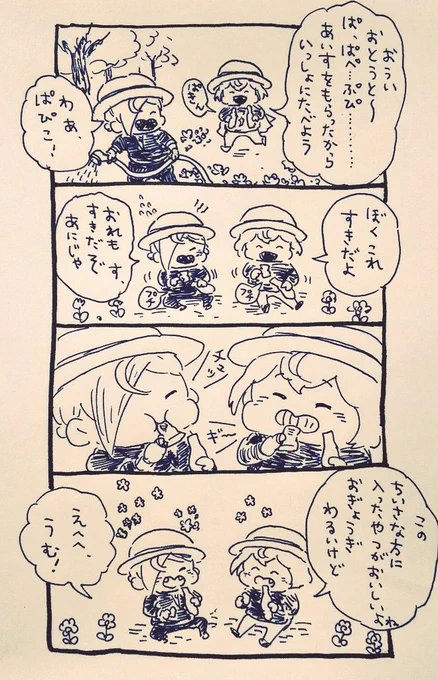 おうい
おとうと〜
ぱ、ぱぺ…ぷぴ………
あいすをもらったから
いっしょにたべよう
わあ、
ぱぴこー!
ぼくこれ
すきだよ
プチ
おれも す
すきだぞ
あにじゃ
プチ
ギー
この
ちいさな方に
入ったやつがおいしいよね
おぎょうぎ
わるいけど
えへへ、
うむ!